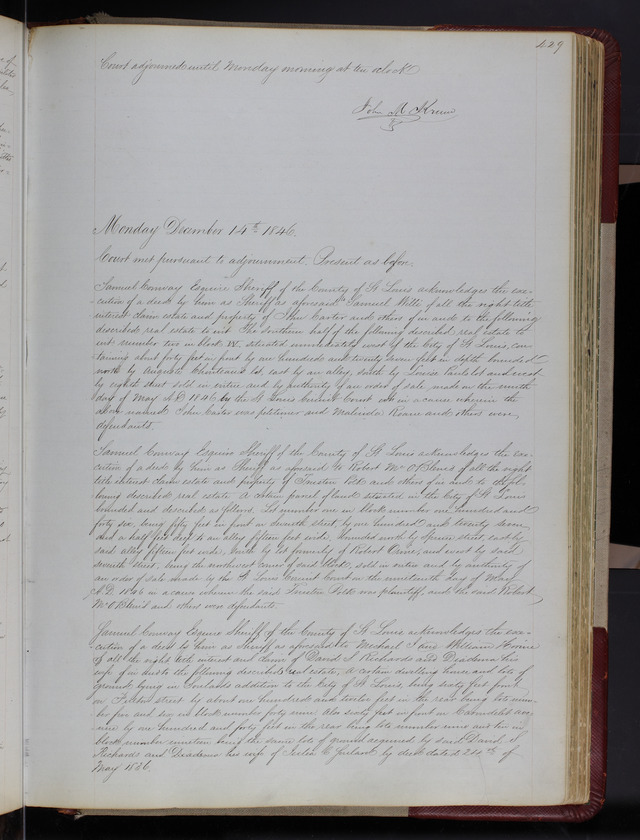 429
Court adjourned until Monday morning at ten oclock
John M. Krum
Monday December 14th 1846.
Court met pursuant to adjournment, Present as before.
Samuel Conway Esquire Sheriff of the County of St Louis acknowledges the exe-
-cution of a deed by him as Sheriff as aforesaid Samuel Willi of all the right title
interest claim estate and property of John Carter and others of in and to the following
described real estate to wit The southern half of the following described real estate to
wit number two in block situated immediately west of the City of St Louis, con-
taining about forty feet in front by one hundred and twenty seven feet in depth bounded
north by Auguste lot, east by an alley, south by Louisa and west
by eighth street sold in entire and by authority of an order of sale made on the
day of May A.D. 1846 by the St Louis Circuit Court in a cause wherein the
above named John Carter was petitioner and Malinda and others were
defendants.
Samuel Conway Esquire Sheriff of the County of St Louis acknowledges the exe-
cution of a deed by him as Sheriff as aforesaid to Robert Mc of all the right
title interest claim estate and property of Polk and others of in and to the fol-
lowing described real estate A certain parcel of land situated in the City of St Louis
bounded and described as follows. Lot number one in block number one hundred and
forty six, being fifty feet in front on seventh street, by one hundred and twenty seven
and a half feet deep to an alley fifteen feet wide, bounded north by Spruce street, east by
said alley fifteen feet wide, south by lot formerly of Robert and west by said
seventh street, being the northwest corner of said block, sold in entire and by authority of
an order of sale made by the St Louis Circuit Court on the nineteenth day of May
A.D. 1846 in a cause wherein the said Polk was plaintiff and the said Robert
Mc and others were defendants.
Samuel Conway Esquire Sheriff of the County of St Louis acknowledges the exe-
cution of a deed by him as Sheriff as aforesaid to Michael and William
of all the right title interest and claim of David S Richards and Diadema his
wife of in and to the following described real estate, A certain dwelling house and lots of
ground lying in addition to the City of St Louis, being sixty feet front
on street by about one hundred and twelve feet in the rear being lots num-
ber five and six in block number forty nine. Also sixty feet in front on Carondelet ave-
nue by one hundred and forty feet in the rear being lots number nine and ten in
block number nineteen being the same lots of ground acquired by said David S
Richards and Diadema his wife of Julia C by deed dated 22nd of
May 1836.